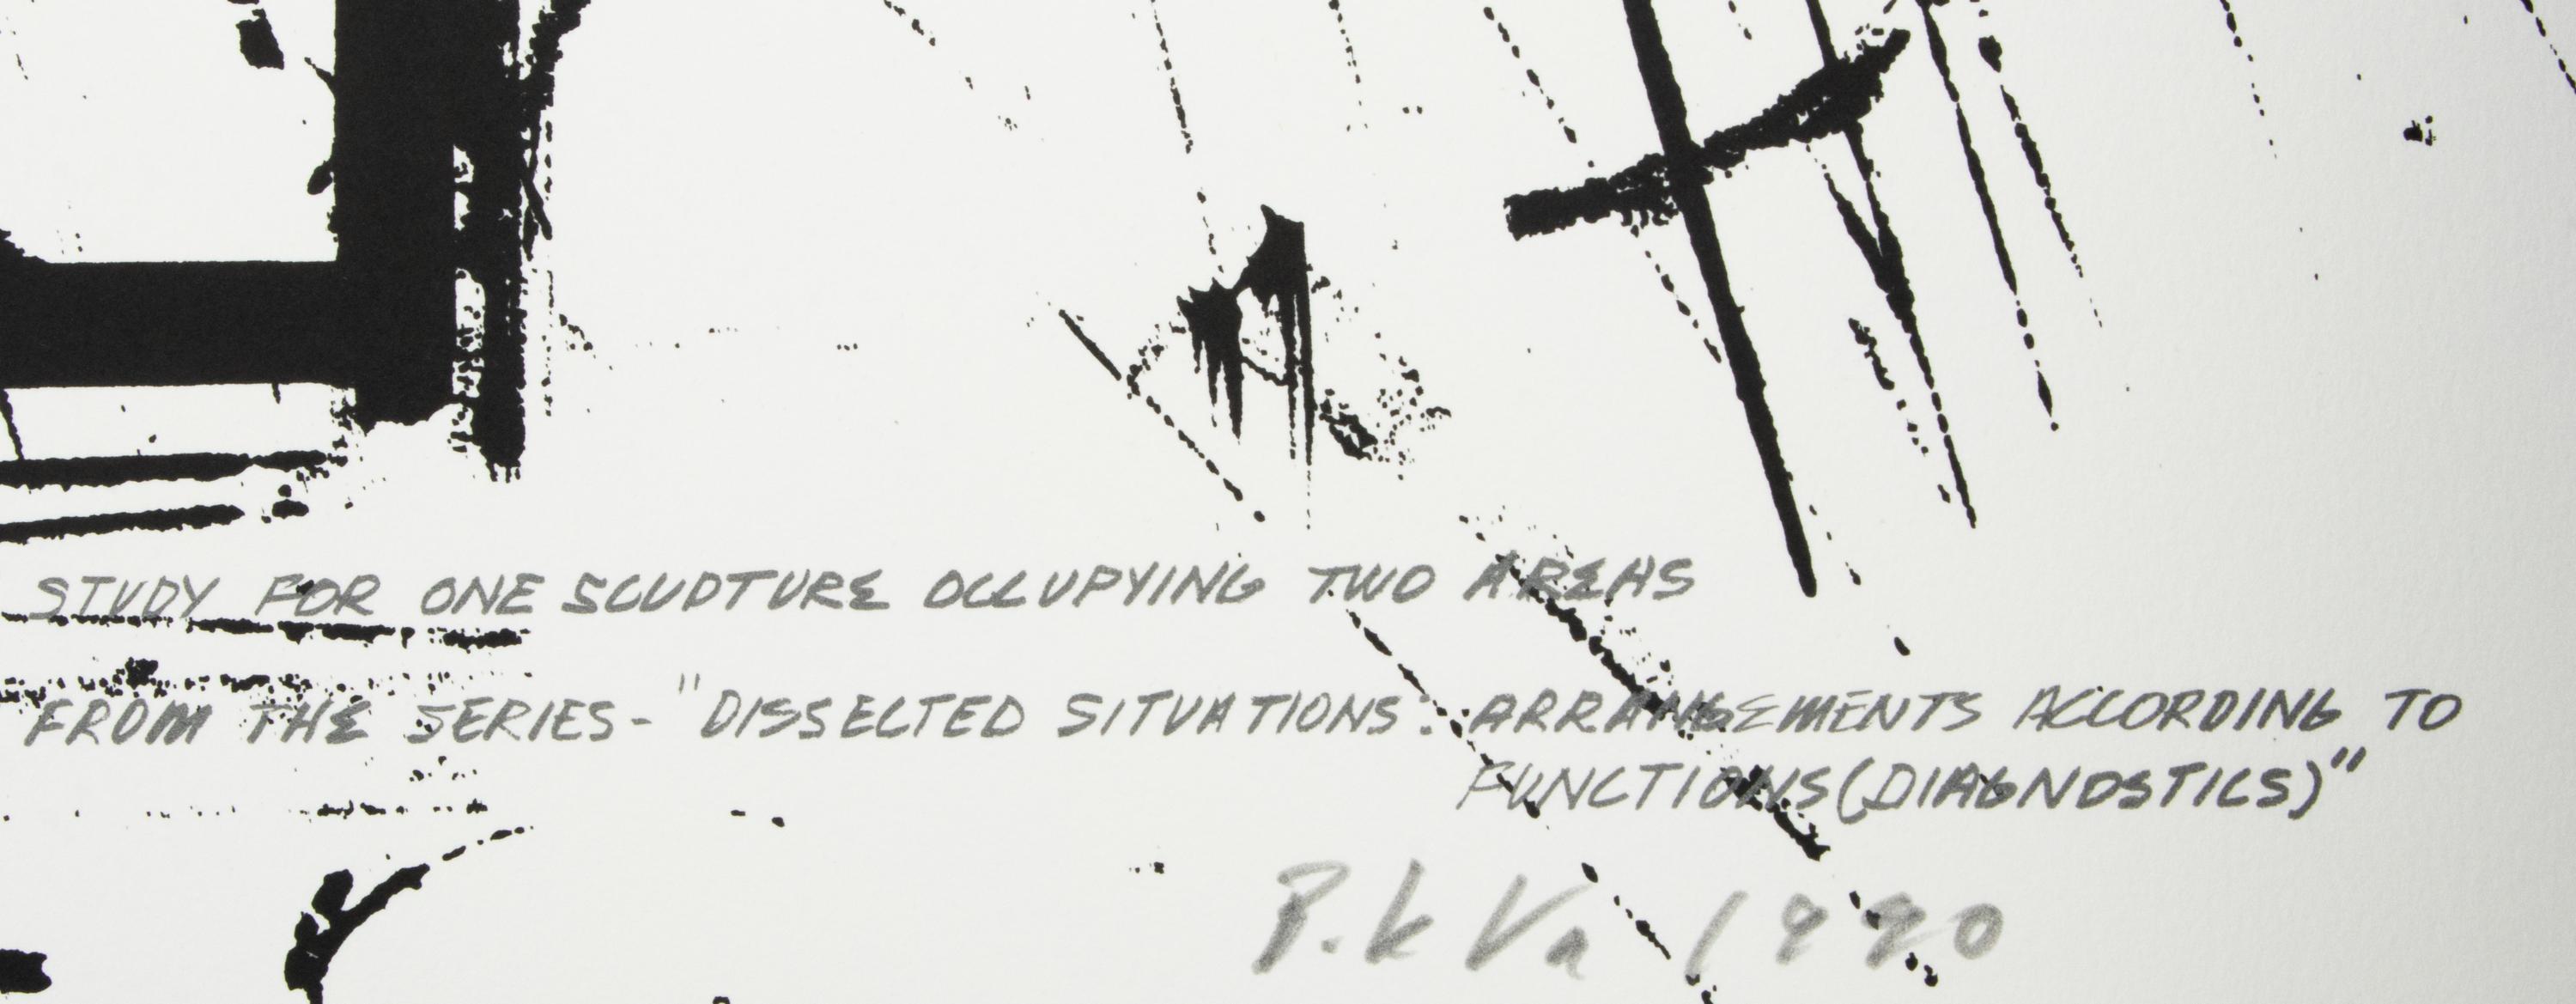 STUDY FOR ONE SCULPTURE OCCUPYING TWO AREAS
FROM THE SERIES - "DISSECTED SITUATIONS: ARRANGEMENTS ACCORDING TO
FUNCTIONS (DIAGNOSTICS)"
P.k Va 1990